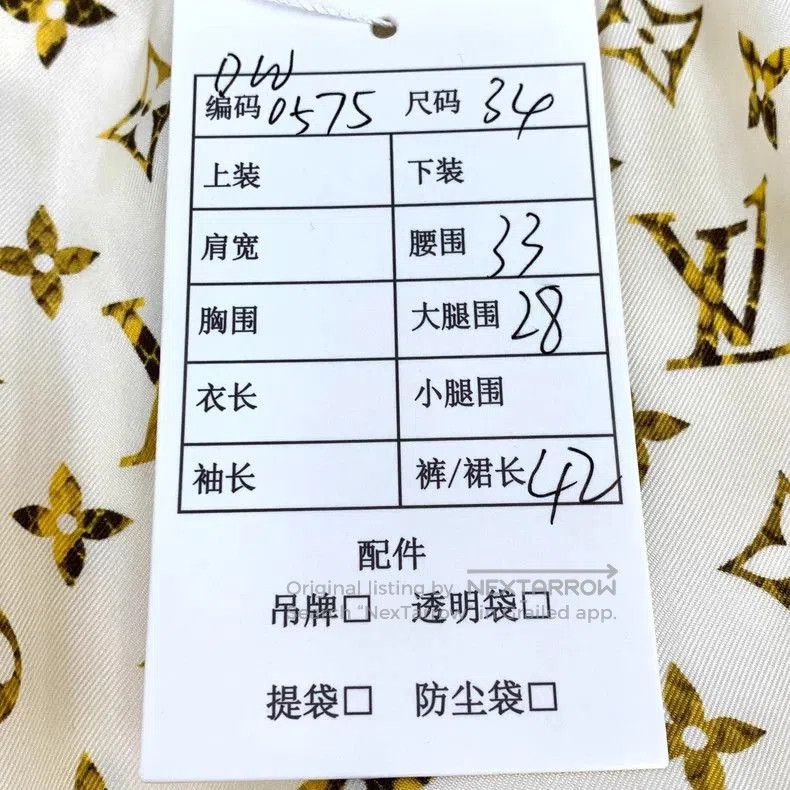 DW
编码 0575 尺码 34
上装 下装
肩宽 腰围 33
胸围 大腿围 28
衣长 小腿围
袖长 裤/裙长 42
配件
Original listing by NEXTARROW
Search "NexTarrow" in Grailed app.
吊牌□ 透明袋□
提袋□ 防尘袋□